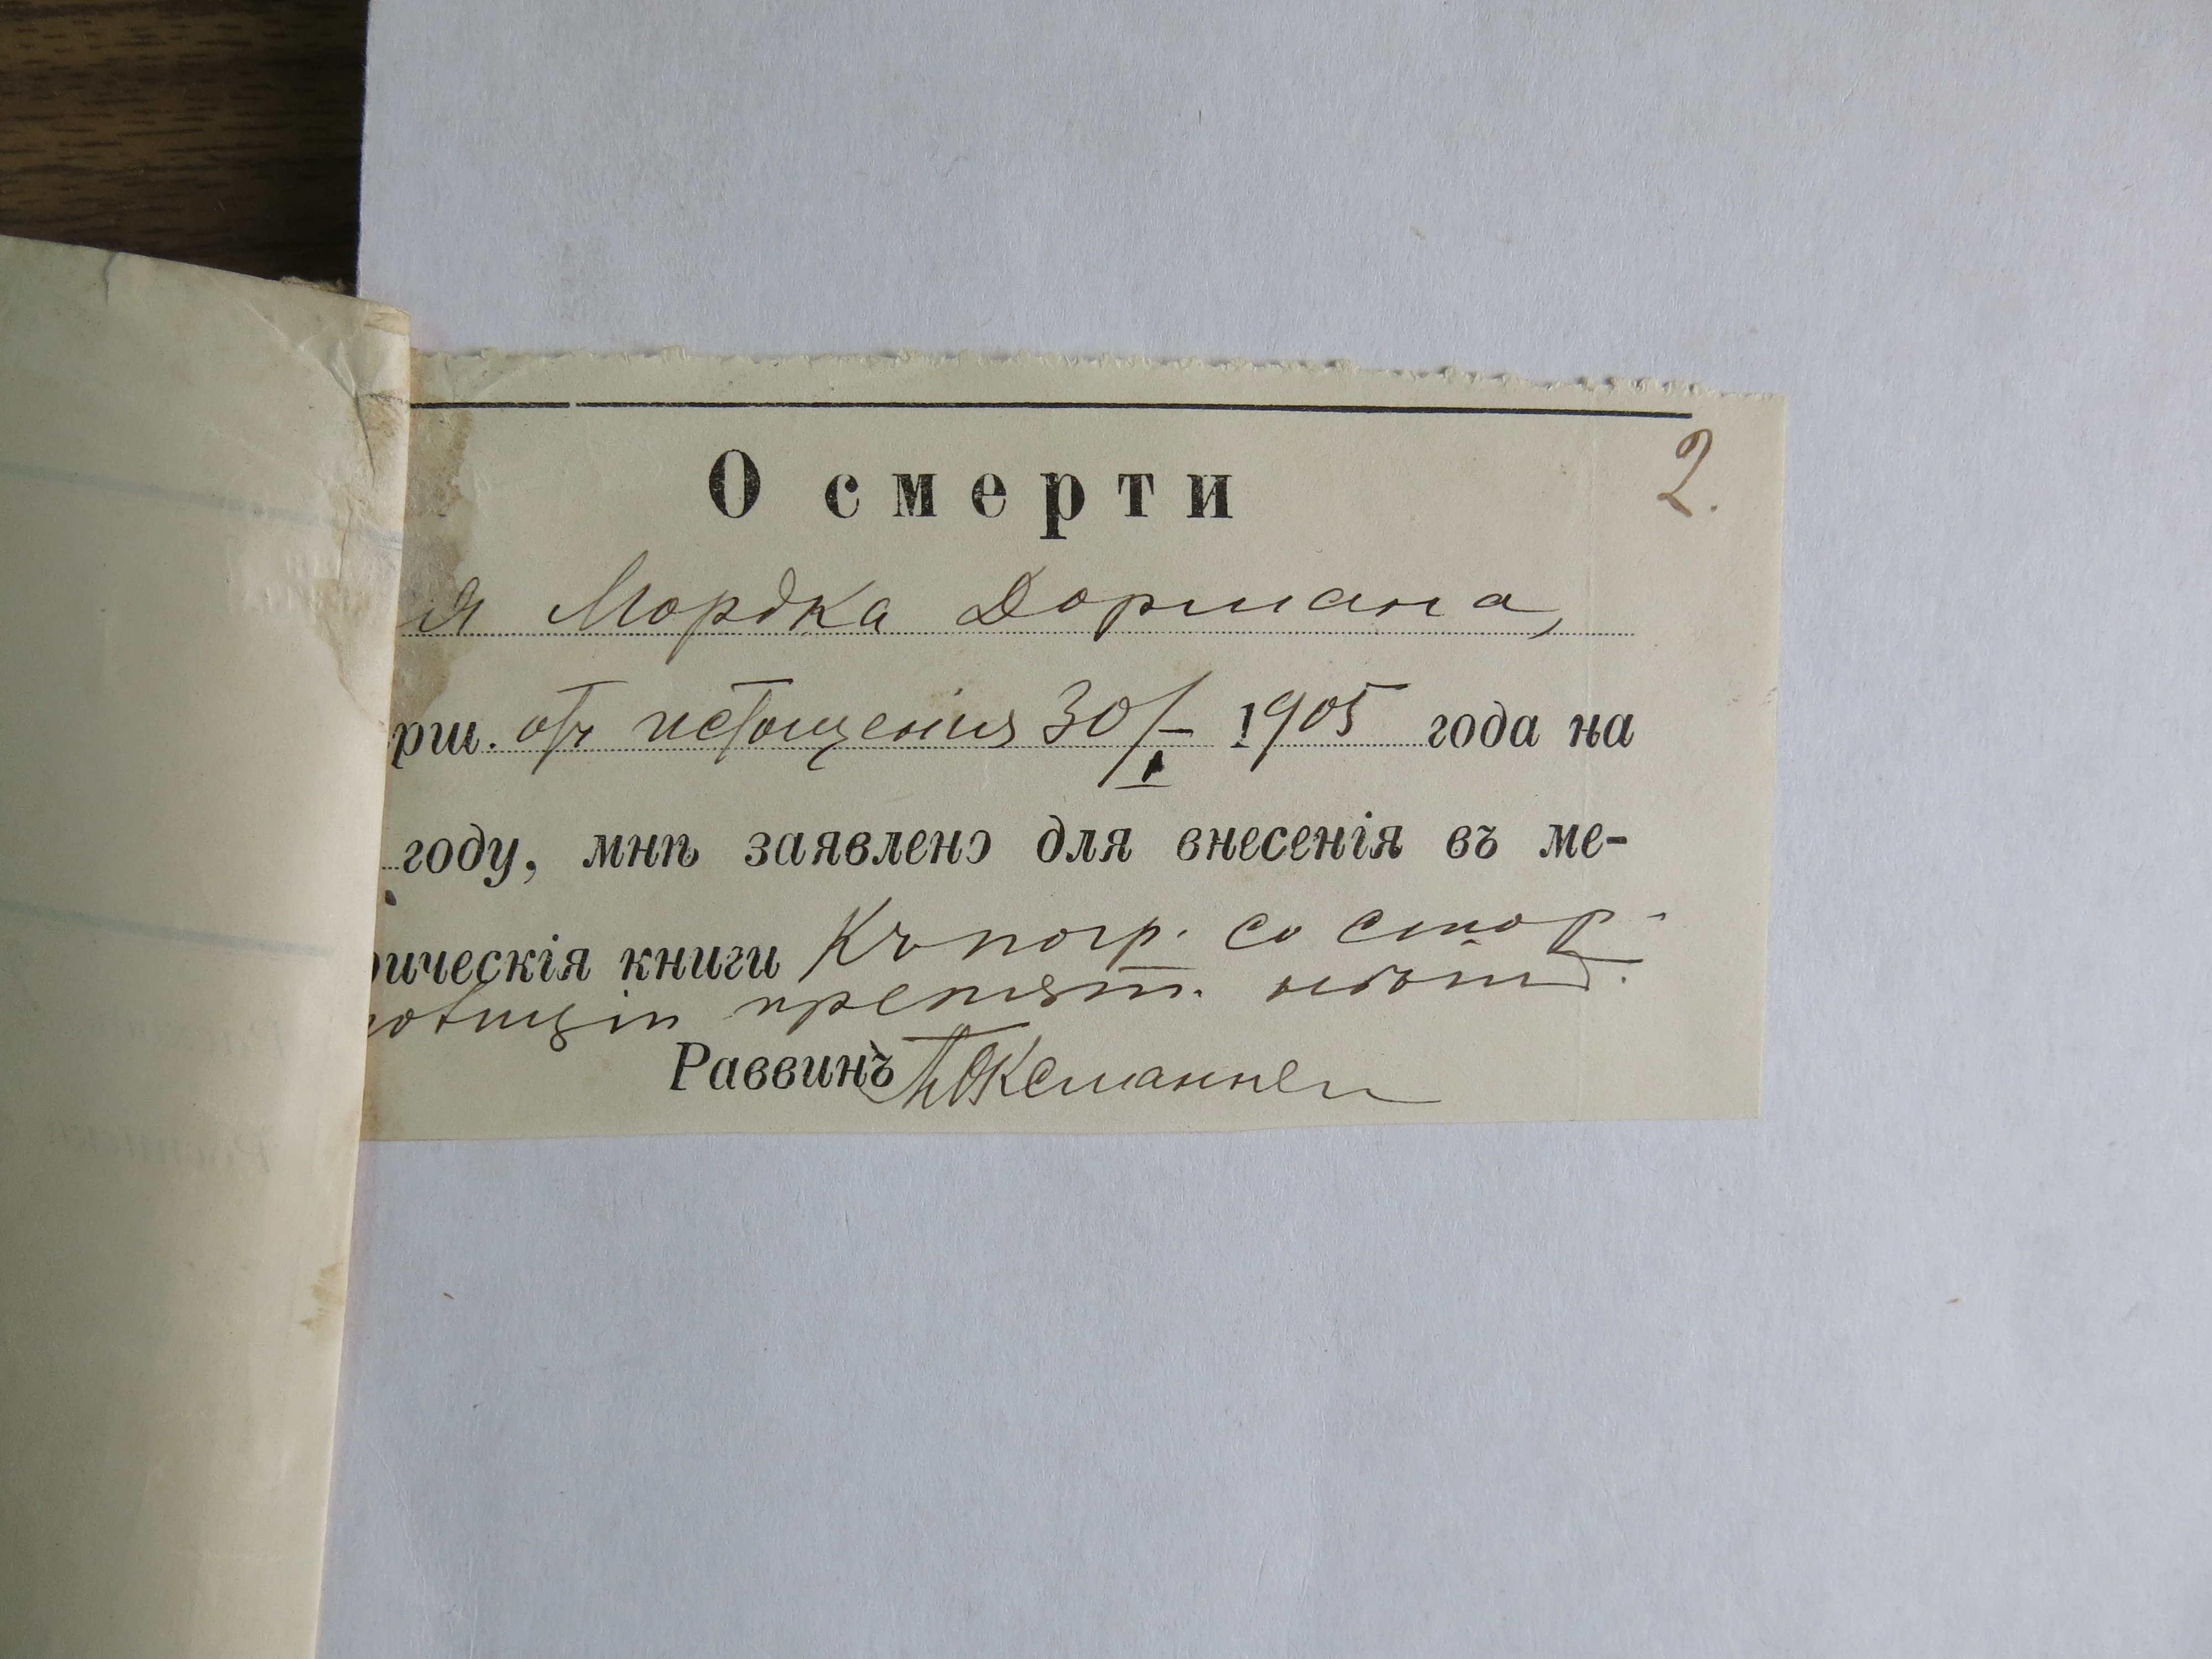 2.
О смерти
ія Мордка Дормана,
рш. отъ истощенія 30/I 1905 года на
году, мнѣ заявлено для внесенія въ ме-
рическія книги Къ погр. со стор.
полиціи препят. нѣтъ.
Раввинъ